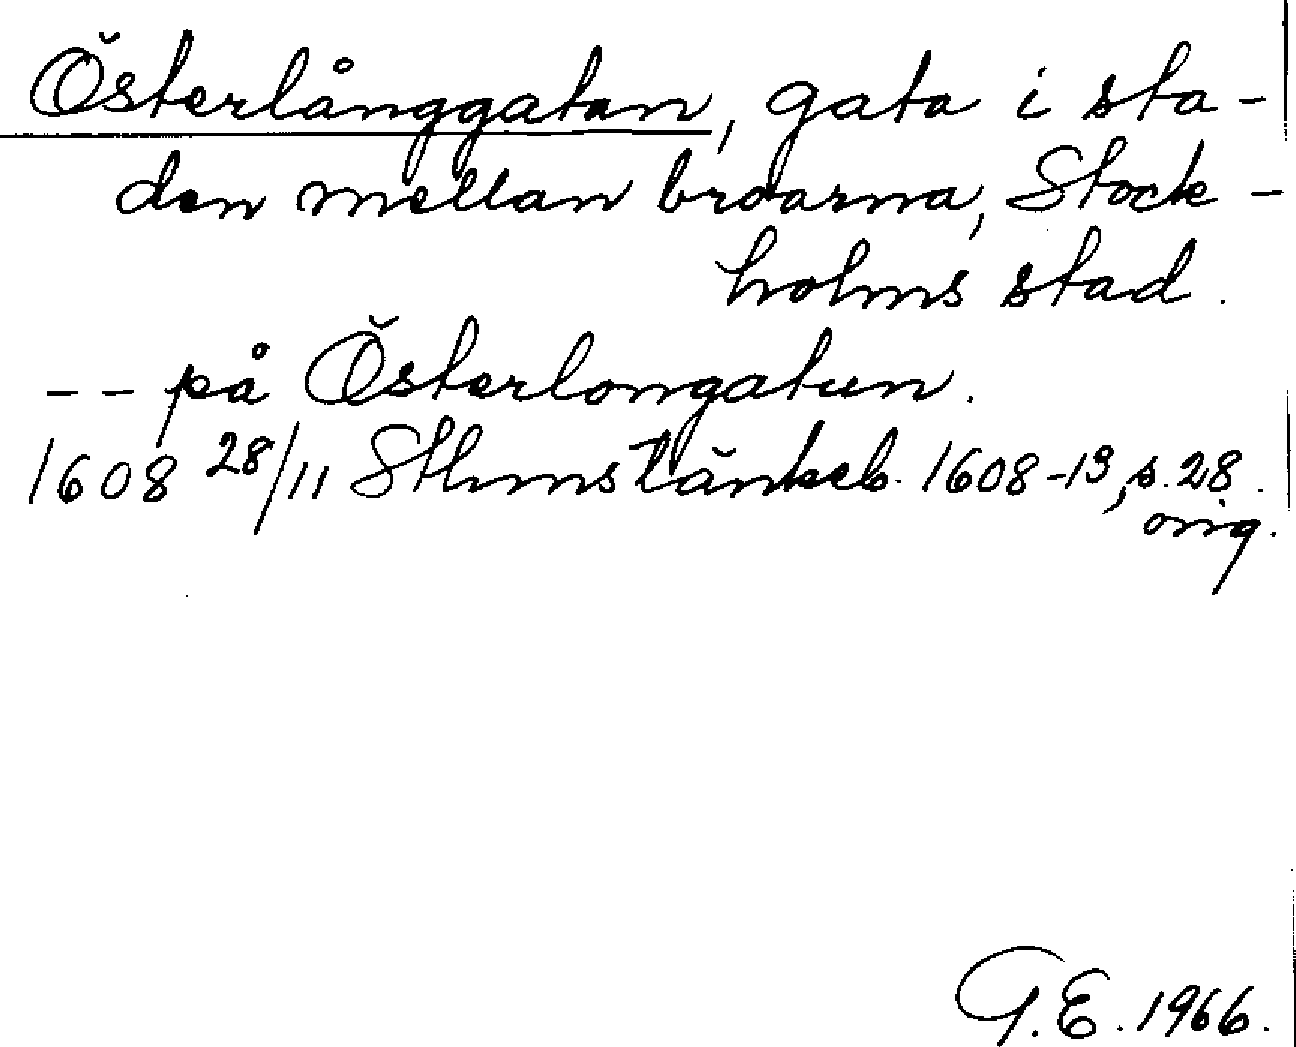 Österlånggatan, gata i sta-
den mellan broarna, Stock-
holms stad.
-- på Österlongatun.
1608 28/11 Sthms tänkeb. 1608-13, s. 28.
orig.
G.E. 1966.